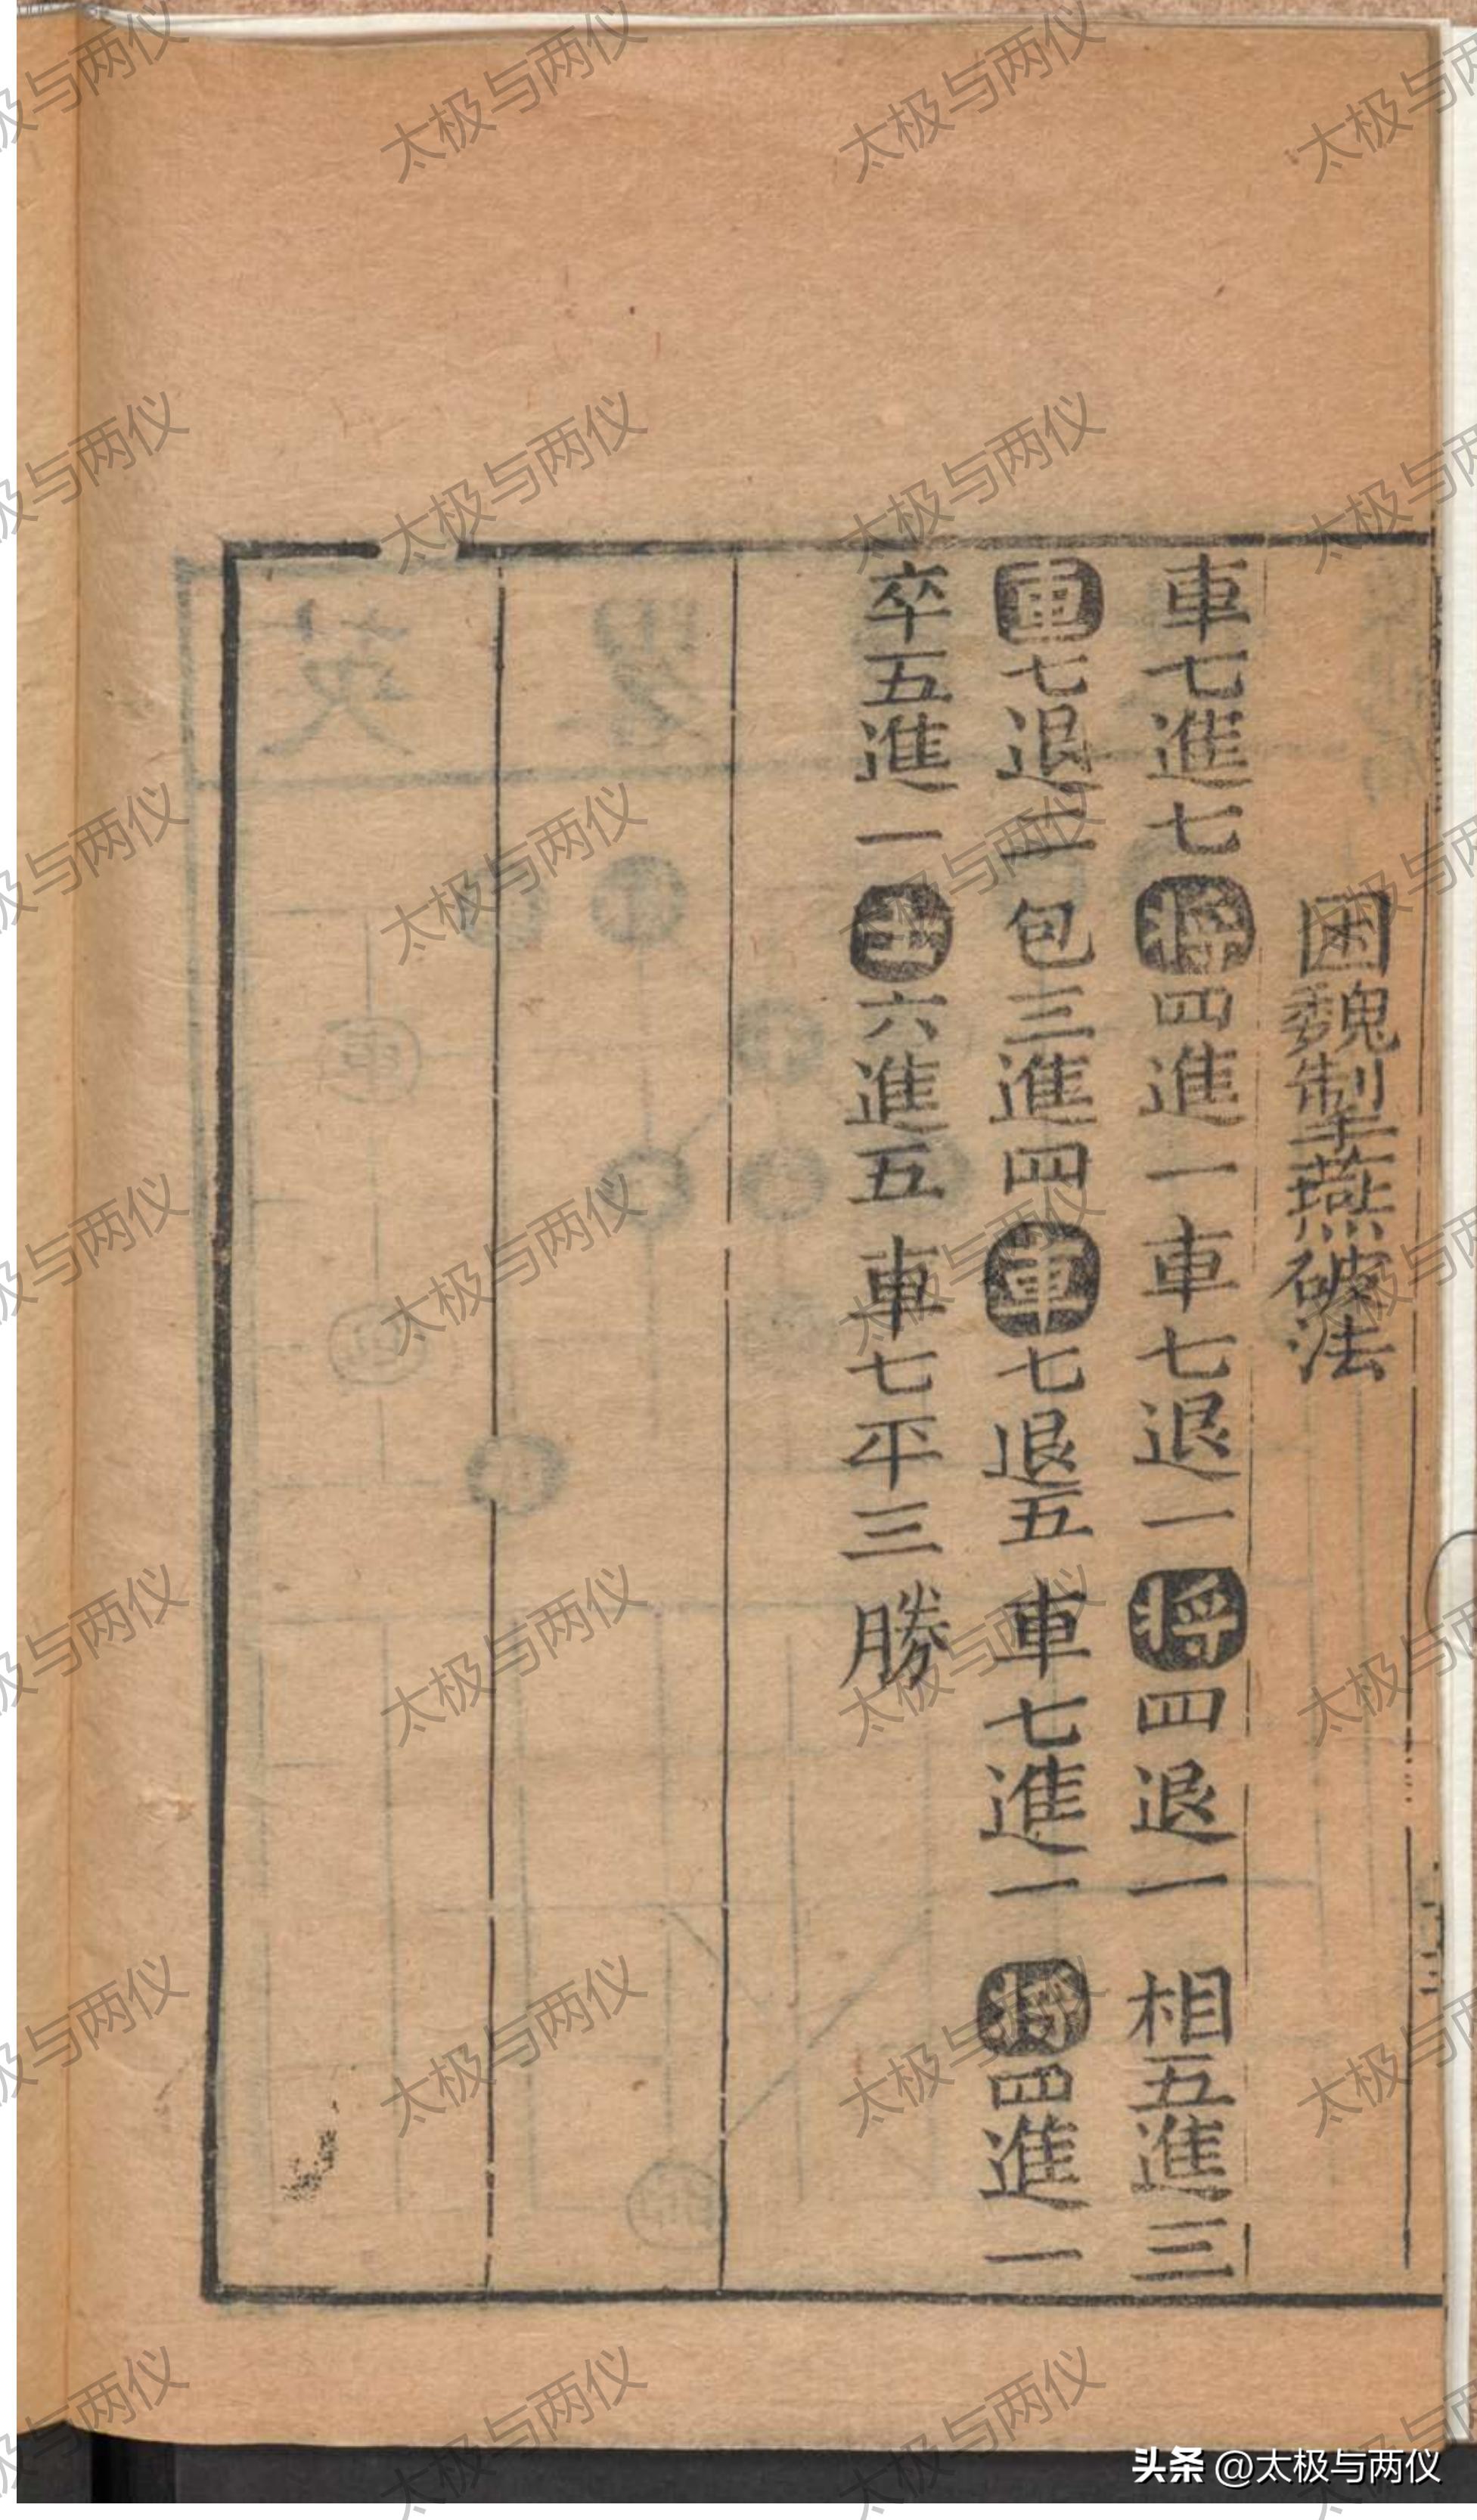 困魏掣燕破法
車七進七將四進一車七退一將四退一相五進三
車七退二包三進四車七退五車七進一將四進一
卒五進一士六進五車七平三勝
太极与两仪
头条 @太极与两仪